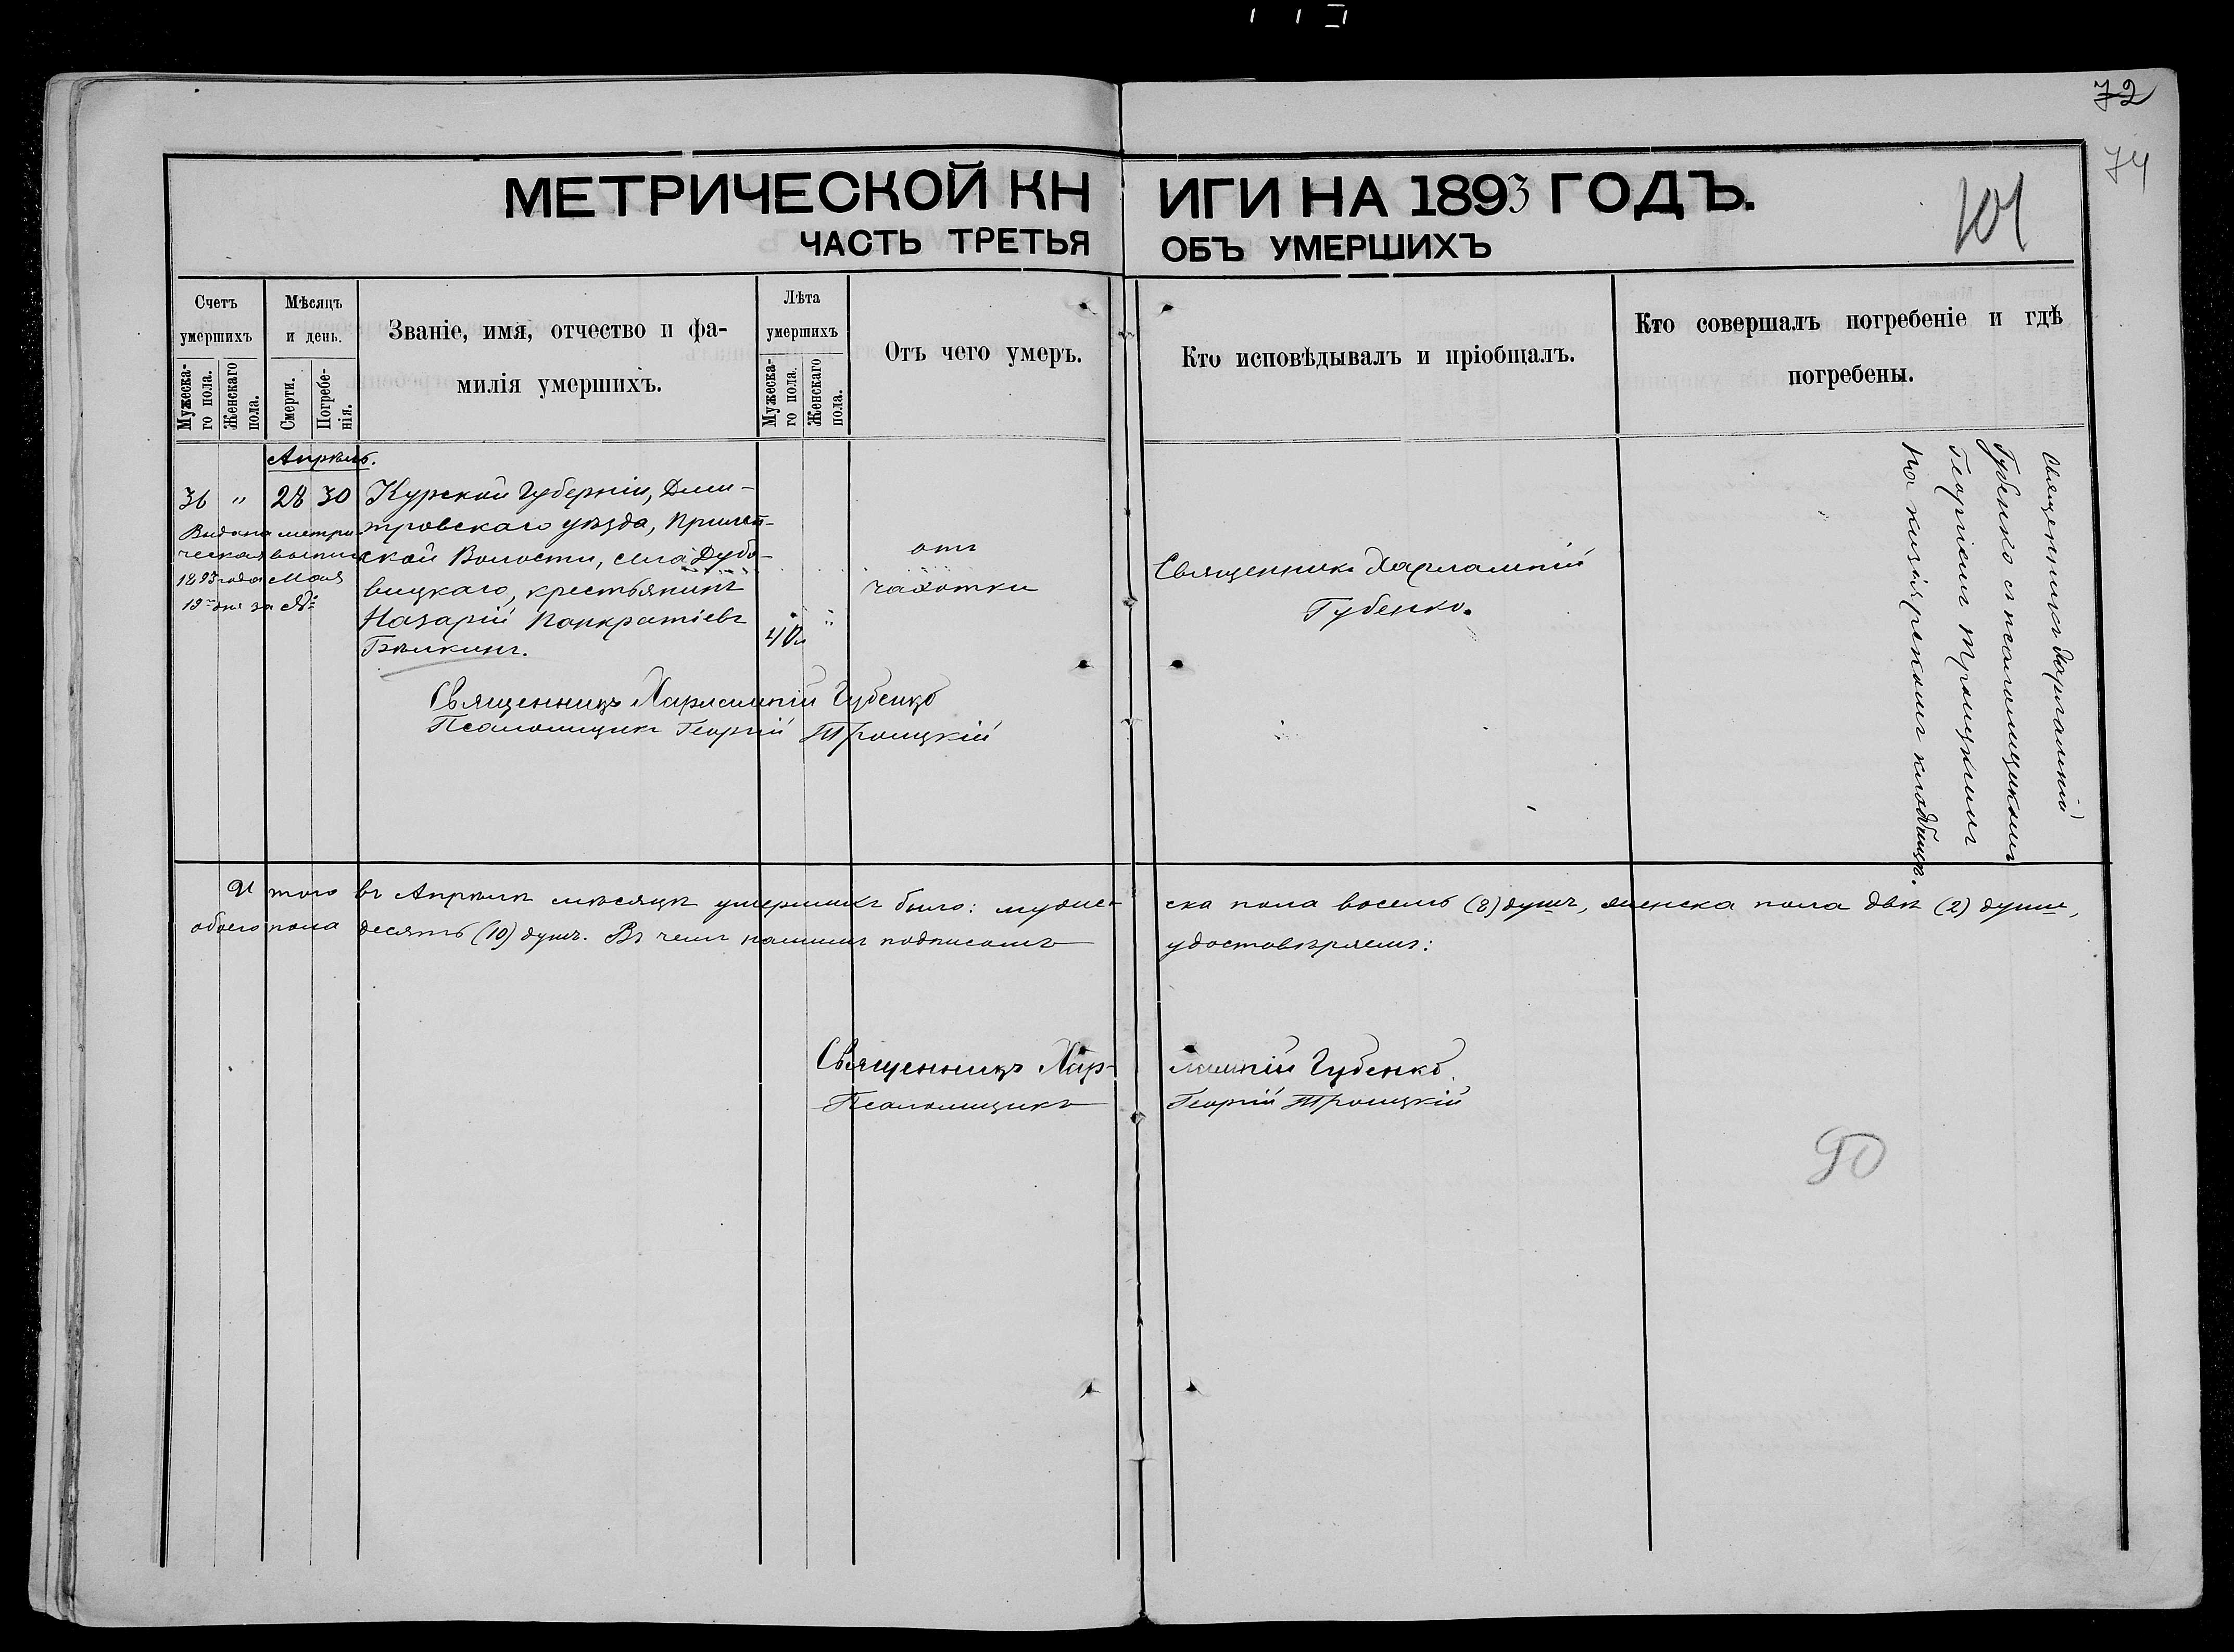 72
74
101
МЕТРИЧЕСКОЙ КНИГИ НА 1893 ГОДЪ.
ЧАСТЬ ТРЕТЬЯ ОБЪ УМЕРШИХЪ
Счетъ умершихъ
Мужеска-го пола.
Женскаго пола.
Мѣсяцъ и день.
Смерти.
Погребе-нія.
Званіе, имя, отчество и фа-
милія умершихъ.
Лѣта умершихъ
Мужеска-го пола.
Женскаго пола.
Отъ чего умеръ.
Кто исповѣдывалъ и пріобщалъ.
Кто совершалъ погребеніе и гдѣ
погребены.
Апрѣль.
36 " 28 30
Выдана метри-
ческая выпись
1893 года Мая
19 дня за №
Курской Губерніи, Дми-
тровскаго уѣзда,
ской Волости, села Дубо-
вицкаго, крестьянинъ
Назарій Панкратіевъ
Бѣлкинъ.
40 "
отъ
чахотки
Священникъ Харлампій
Губенко.
Священникъ Харлампій
Губенко съ псаломщикомъ
Георгіемъ Троицкимъ
на кладбищѣ.
Священникъ Харлампій Губенко
Псаломщикъ Георгій Троицкій
Итого въ Апрѣлѣ мѣсяцѣ умершихъ было: мужеска пола восемь (8) душъ, женска пола двѣ (2) души,
обоего пола десять (10) душъ. Въ чемъ нашимъ подписомъ удостовѣряемъ:
Священникъ Харлампій Губенко
Псаломщикъ Георгій Троицкій
90